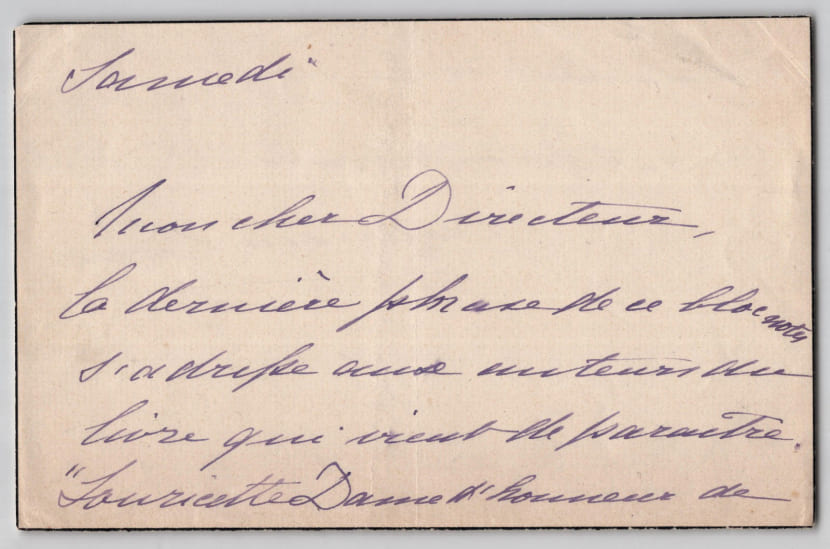 Samedi
Mon cher Directeur,
la dernière phrase de ce bloc notes
s'adresse aux auteurs du
livre qui vient de paraitre
"Souricette Dame d'honneur de